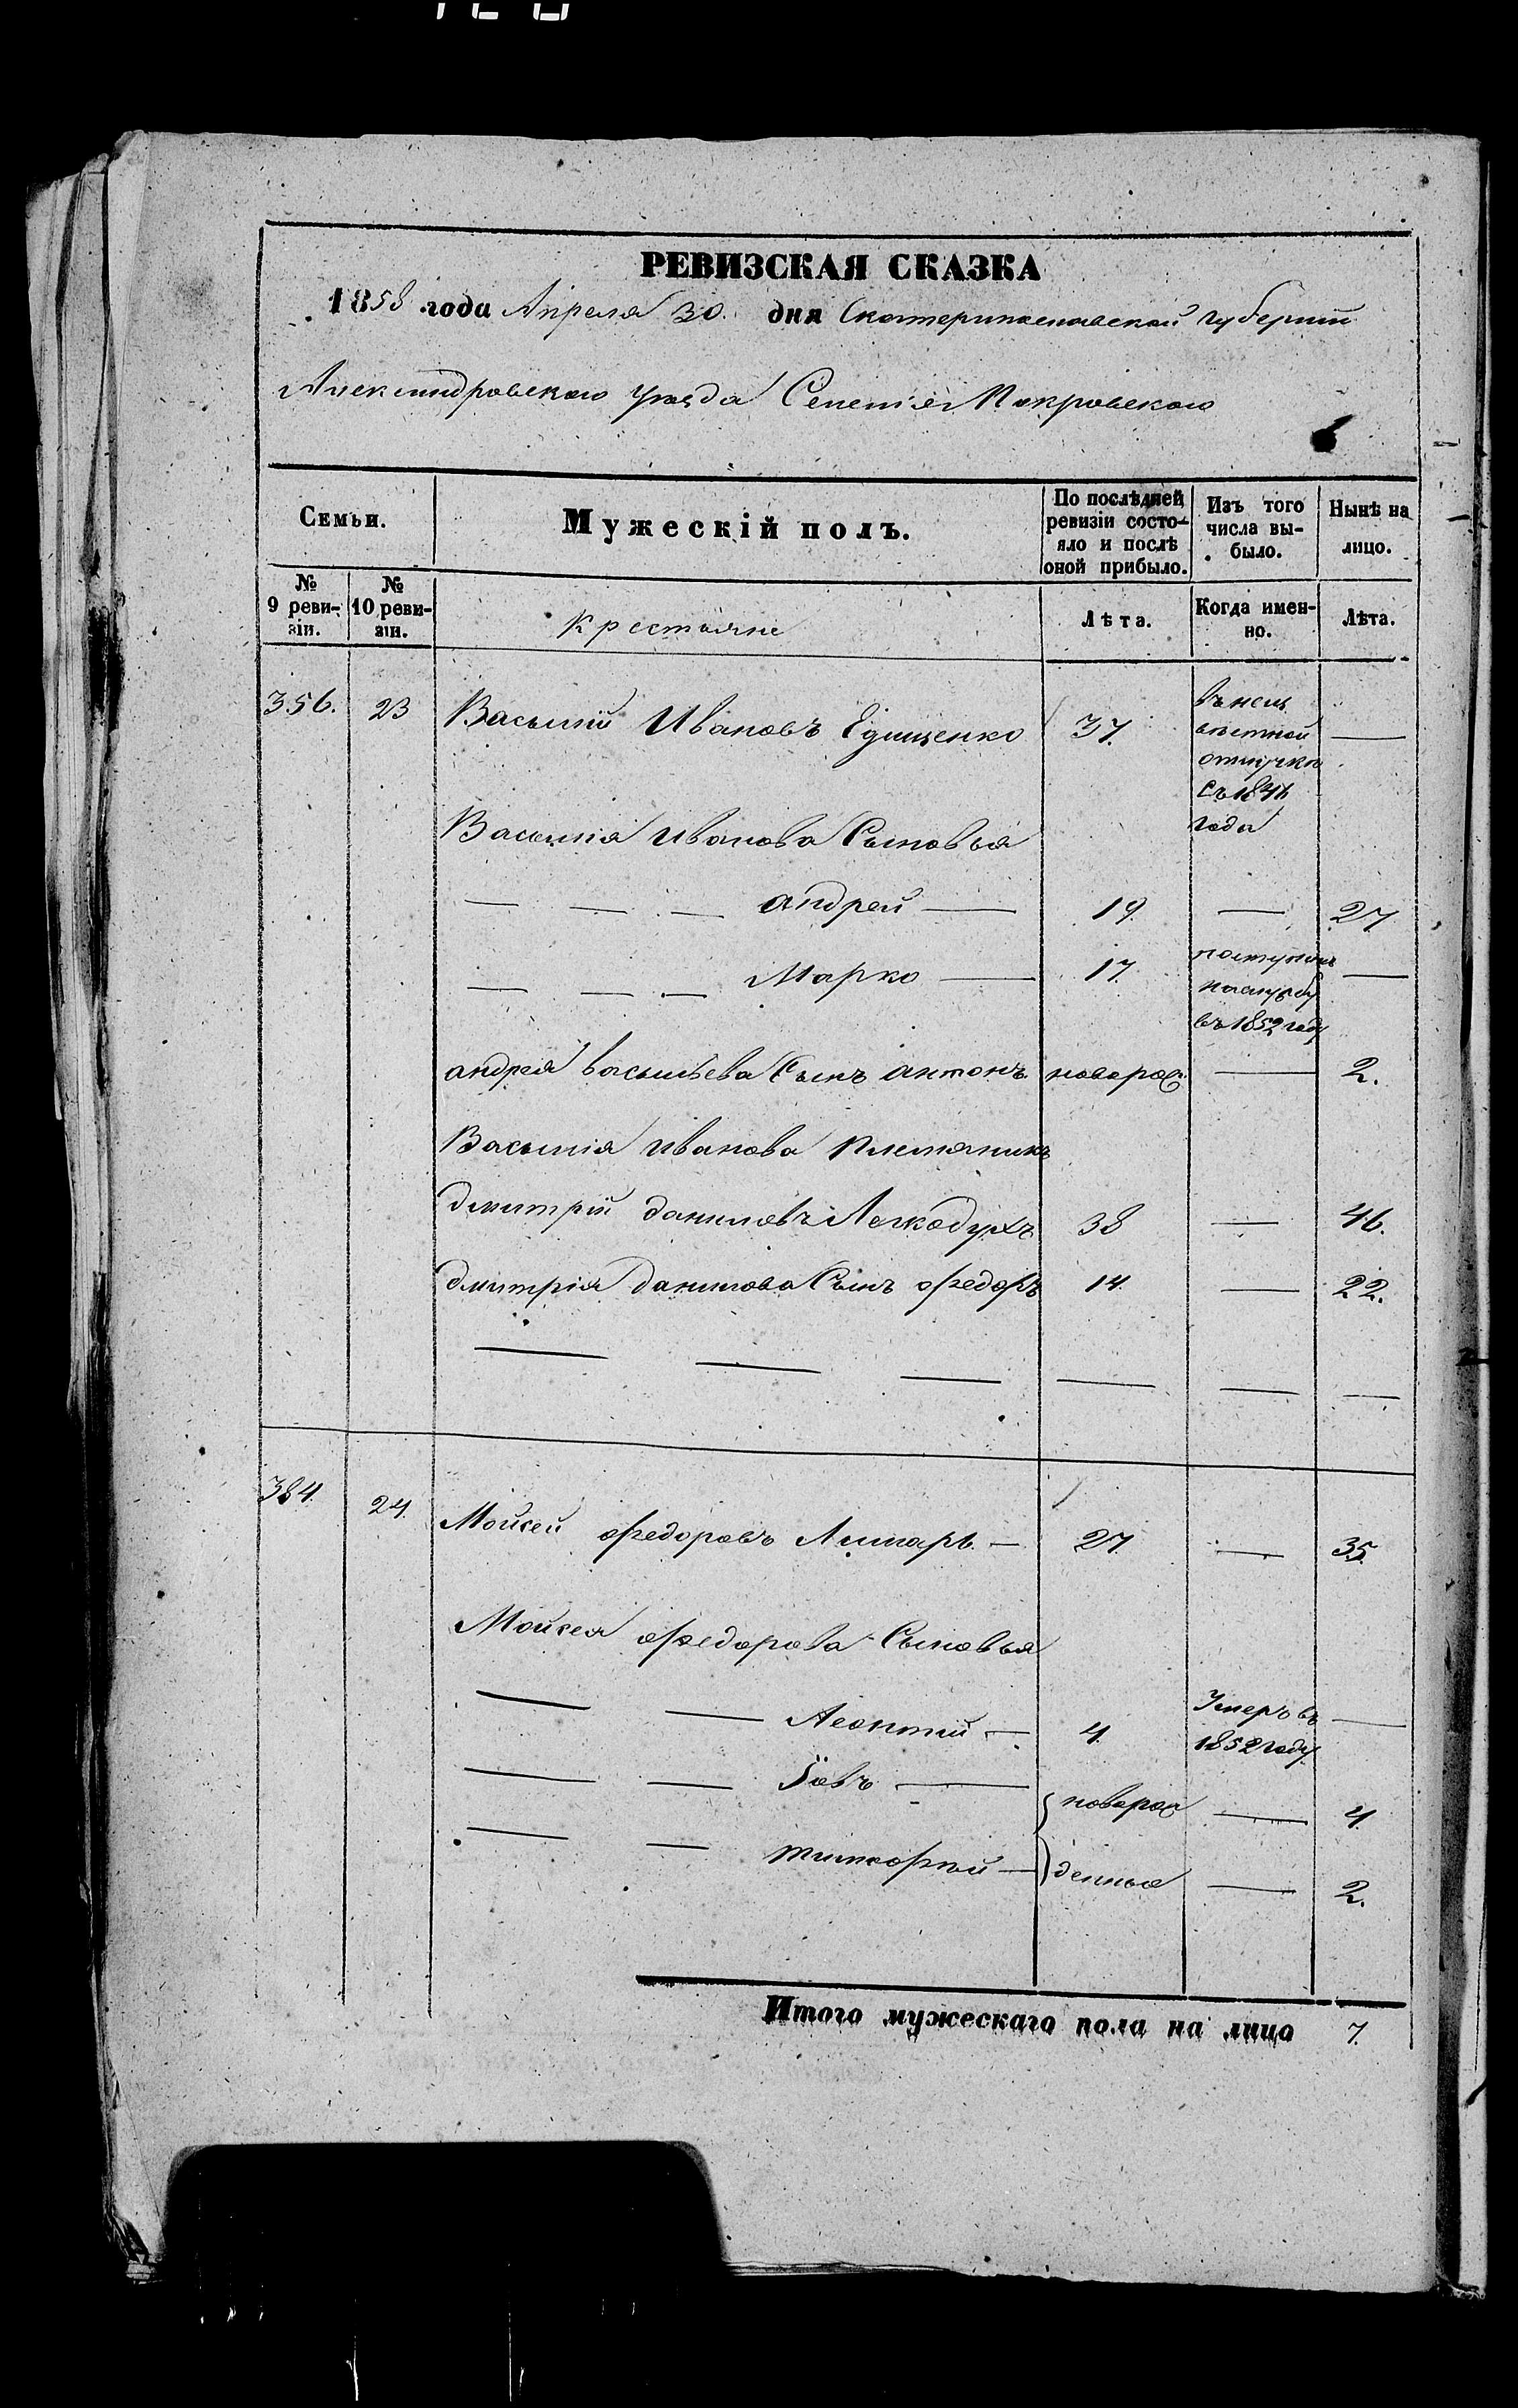 РЕВИЗСКАЯ СКАЗКА
1858 года Апреля 30. дня Екатеринославской губерніи
Александровского уѣзда Селенія Покровского
Семьи.
Мужескій полъ.
По послѣдней ревизіи состояло и послѣ оной прибыло.
Изъ того числа выбыло.
Нынѣ на лицо.
№ 9 ревизіи.
№ 10 ревизіи.
Крестьяне
Лѣта.
Когда именно.
Лѣта.
356. 23 Василій Ивановъ 37. —
въ неиз
вѣстной
отлучкѣ
года
Василія Иванова Сыновья
— — — андрей — 19. — 27
— — — Марко — 17. —
въ 1852 году
андрея васильева Сынъ антонъ новорож. — 2.
Василія Иванова племяникъ
дмитрій даниловъ Легкодухъ 38 — 46.
дмитрія данилова Сынъ федоръ 14. — 22.
— — — — — —
384. 24. Мойсей федоровъ Лимарь — 27. — 35.
Мойсея федорова Сыновья
— — Леонтій — 4. Умеръ въ —
1852 году
— — Іовъ — новорож — 4.
— — тимофей — денные — 2.
Итого мужескаго пола на лицо 7.